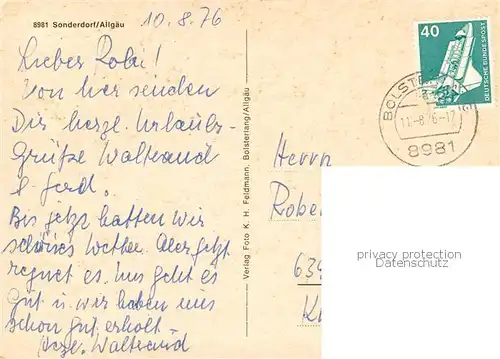 8981 Sonderdorf/Allgäu
10.8.76
Lieber Robi!
Von hier senden
Dir herzl. Urlaubs-
Grüße Waltraud
& Gerd.
Bis jetzt hatten wir
schönes Wetter. Aber jetzt
regnet es. Uns geht es
Gut u. wir haben uns
schon gut erholt –
Herzl. Waltraud
Verlag Foto K. H. Feldmann, Bolsterlang/Allgäu
40
DEUTSCHE BUNDESPOST
BOLSTE
11.-8.76-17
8981
Herrn
Rober
634
privacy protection
Datenschutz